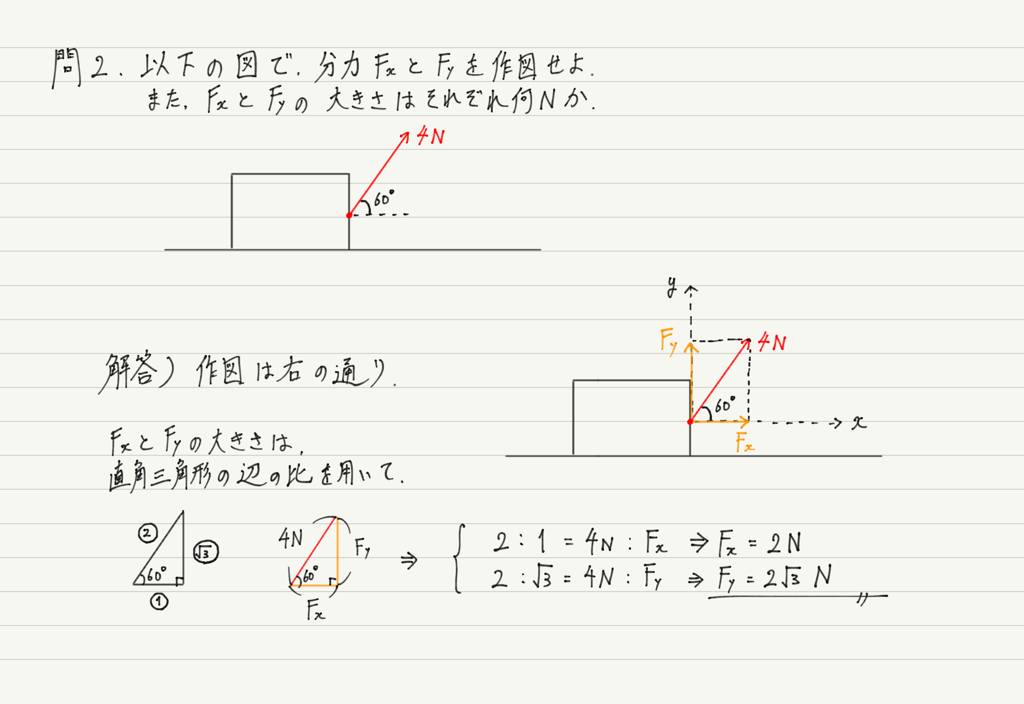 問2. 以下の図で、分力 Fx と Fy を作図せよ.
また、Fx と Fy の 大きさはそれぞれ何Nか.
4N
60°
y
Fy
4N
60°
x
Fx
解答) 作図は右の通り.
Fx と Fy の大きさは、
直角三角形の辺の比を用いて.
② √3 60° ①
4N Fy 60° Fx
⇒ { 2 : 1 = 4N : Fx ⇒ Fx = 2N
2 : √3 = 4N : Fy ⇒ Fy = 2√3 N